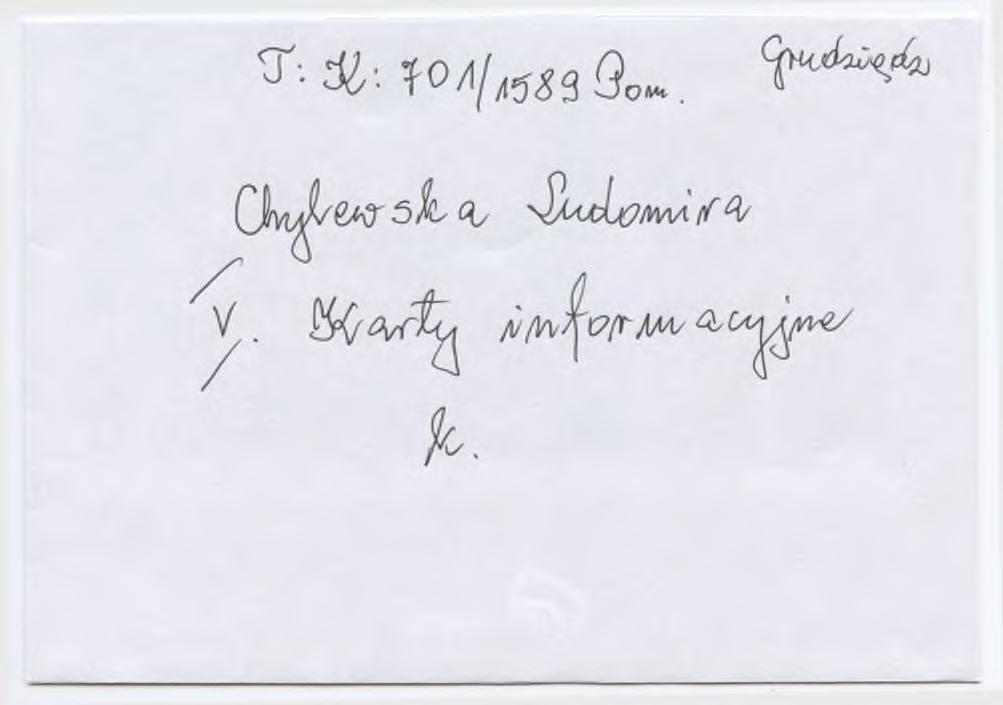 T: K: 701/1589 Pom. Grudziądz
Chylewska Ludomira
V. Karty informacyjne
k.